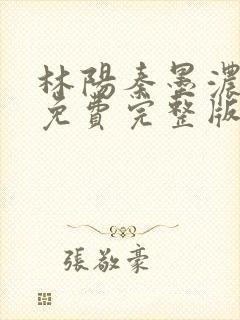 林陽秦墨濃
免費完整版
張敬豪